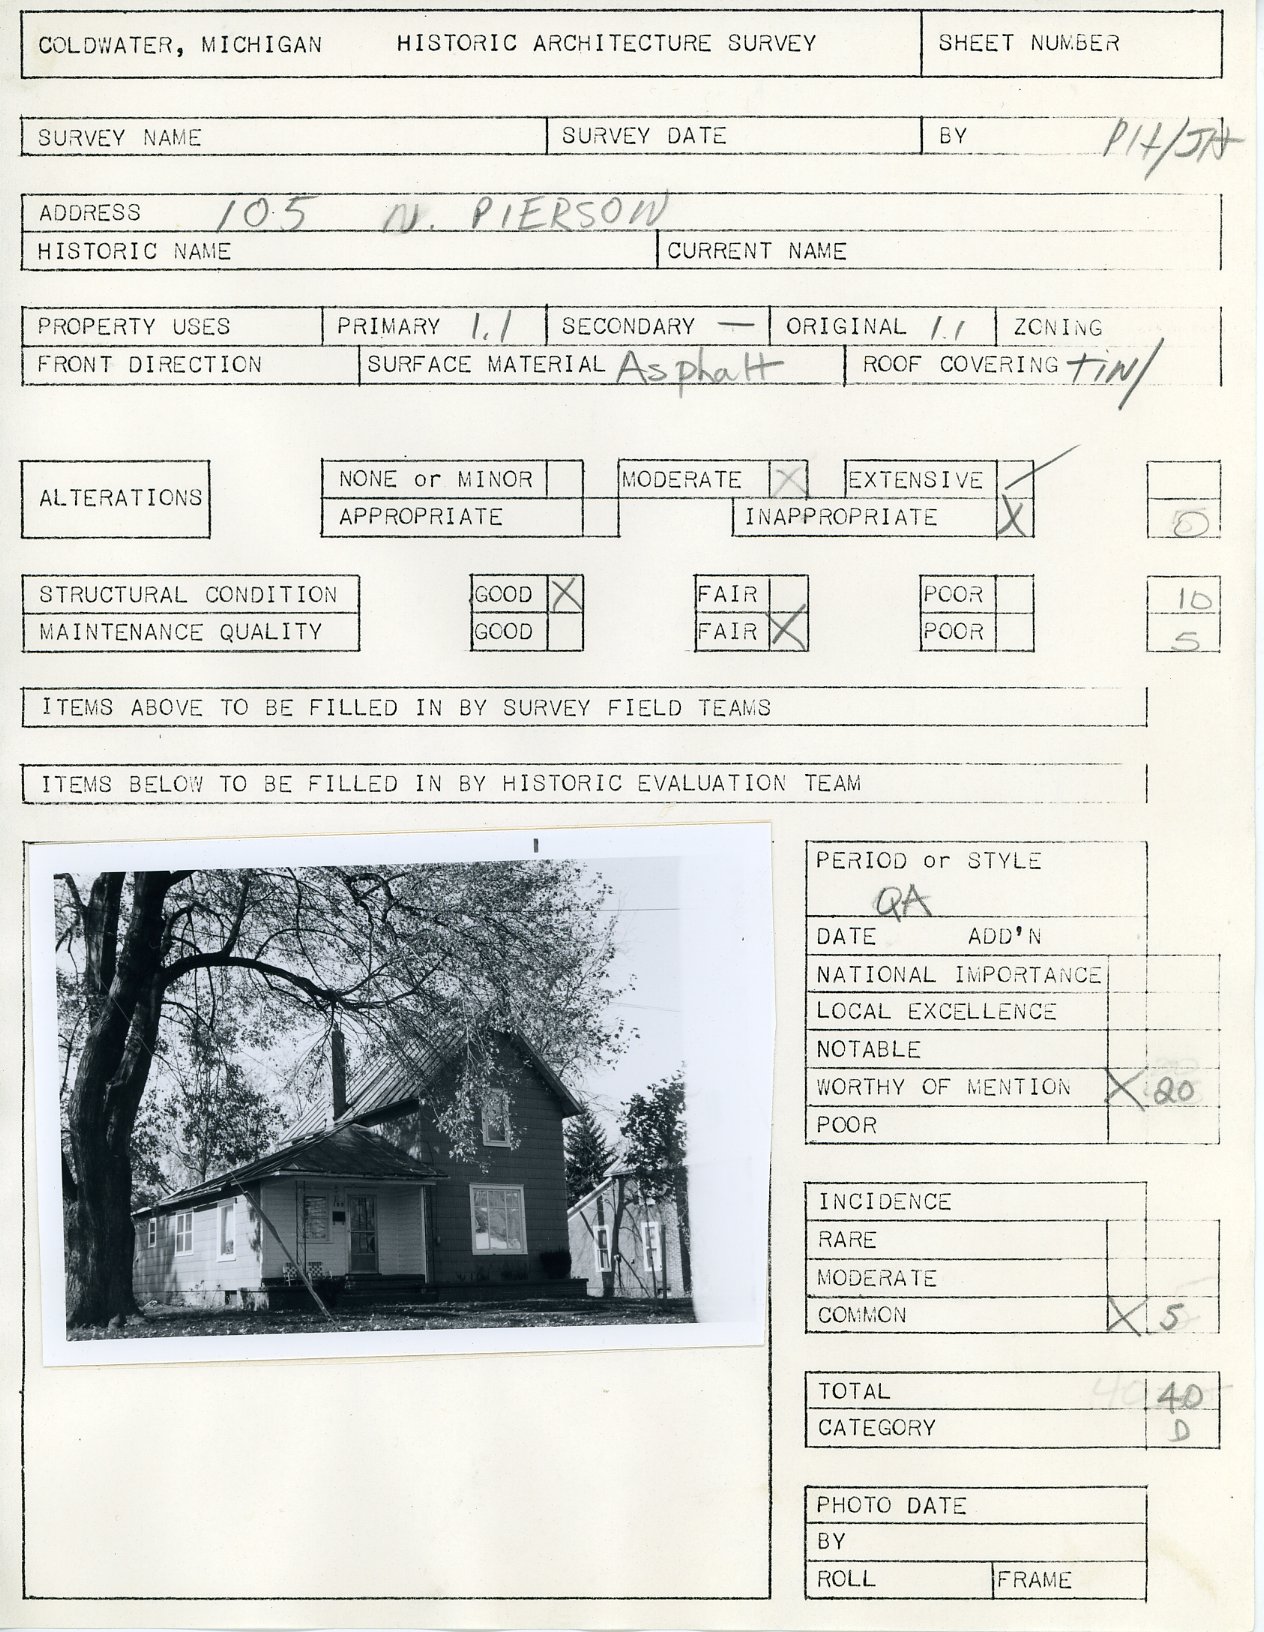 COLDWATER, MICHIGAN HISTORIC ARCHITECTURE SURVEY SHEET NUMBER
SURVEY NAME SURVEY DATE BY PH/JH
ADDRESS 105 N. PIERSON
HISTORIC NAME CURRENT NAME
PROPERTY USES PRIMARY 1.1 SECONDARY — ORIGINAL 1.1 ZONING
FRONT DIRECTION SURFACE MATERIAL Asphalt ROOF COVERING TIN/
ALTERATIONS
NONE or MINOR MODERATE X EXTENSIVE ✓
APPROPRIATE INAPPROPRIATE X 0
STRUCTURAL CONDITION GOOD X FAIR POOR 10
MAINTENANCE QUALITY GOOD FAIR X POOR 5
ITEMS ABOVE TO BE FILLED IN BY SURVEY FIELD TEAMS
ITEMS BELOW TO BE FILLED IN BY HISTORIC EVALUATION TEAM
PERIOD or STYLE
QA
DATE ADD'N
NATIONAL IMPORTANCE
LOCAL EXCELLENCE
NOTABLE
WORTHY OF MENTION X 20
POOR
INCIDENCE
RARE
MODERATE
COMMON X 5
TOTAL 40 40
CATEGORY D
PHOTO DATE
BY
ROLL FRAME